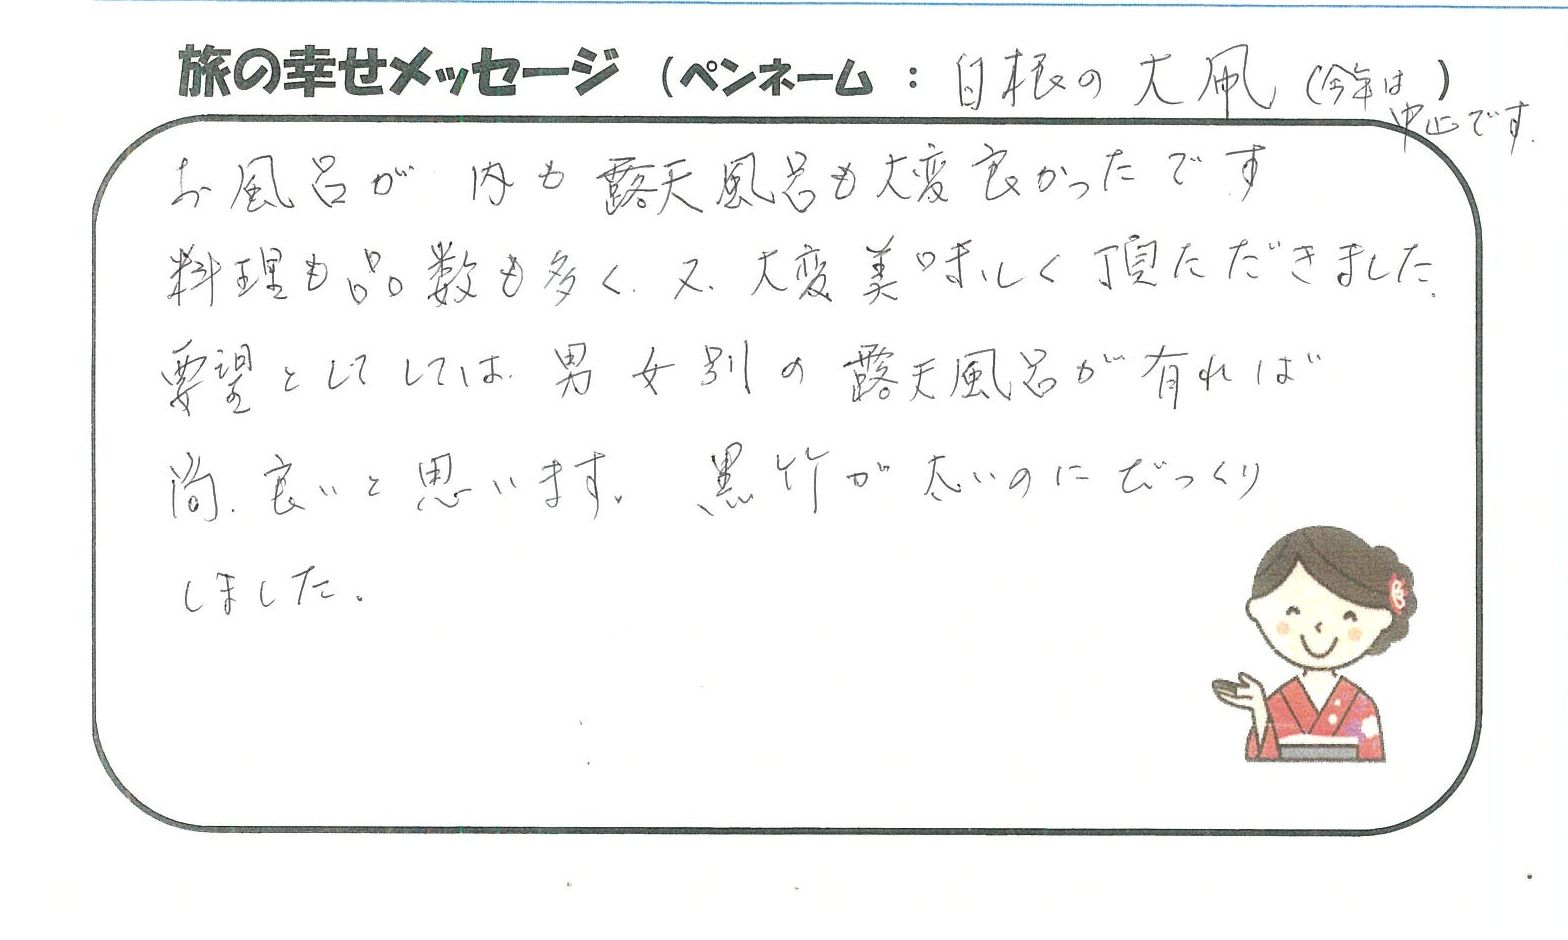 旅の幸せメッセージ (ペンネーム : 白根の大凧 (今年は)
中止です.
お風呂が 内も 露天風呂も大変良かったです
料理も品数も多く、又、大変美味しく頂ただきました.
要望としてしては、男女別の露天風呂が有れば
尚、良いと思います。 黒竹が太いのにびっくり
しました.